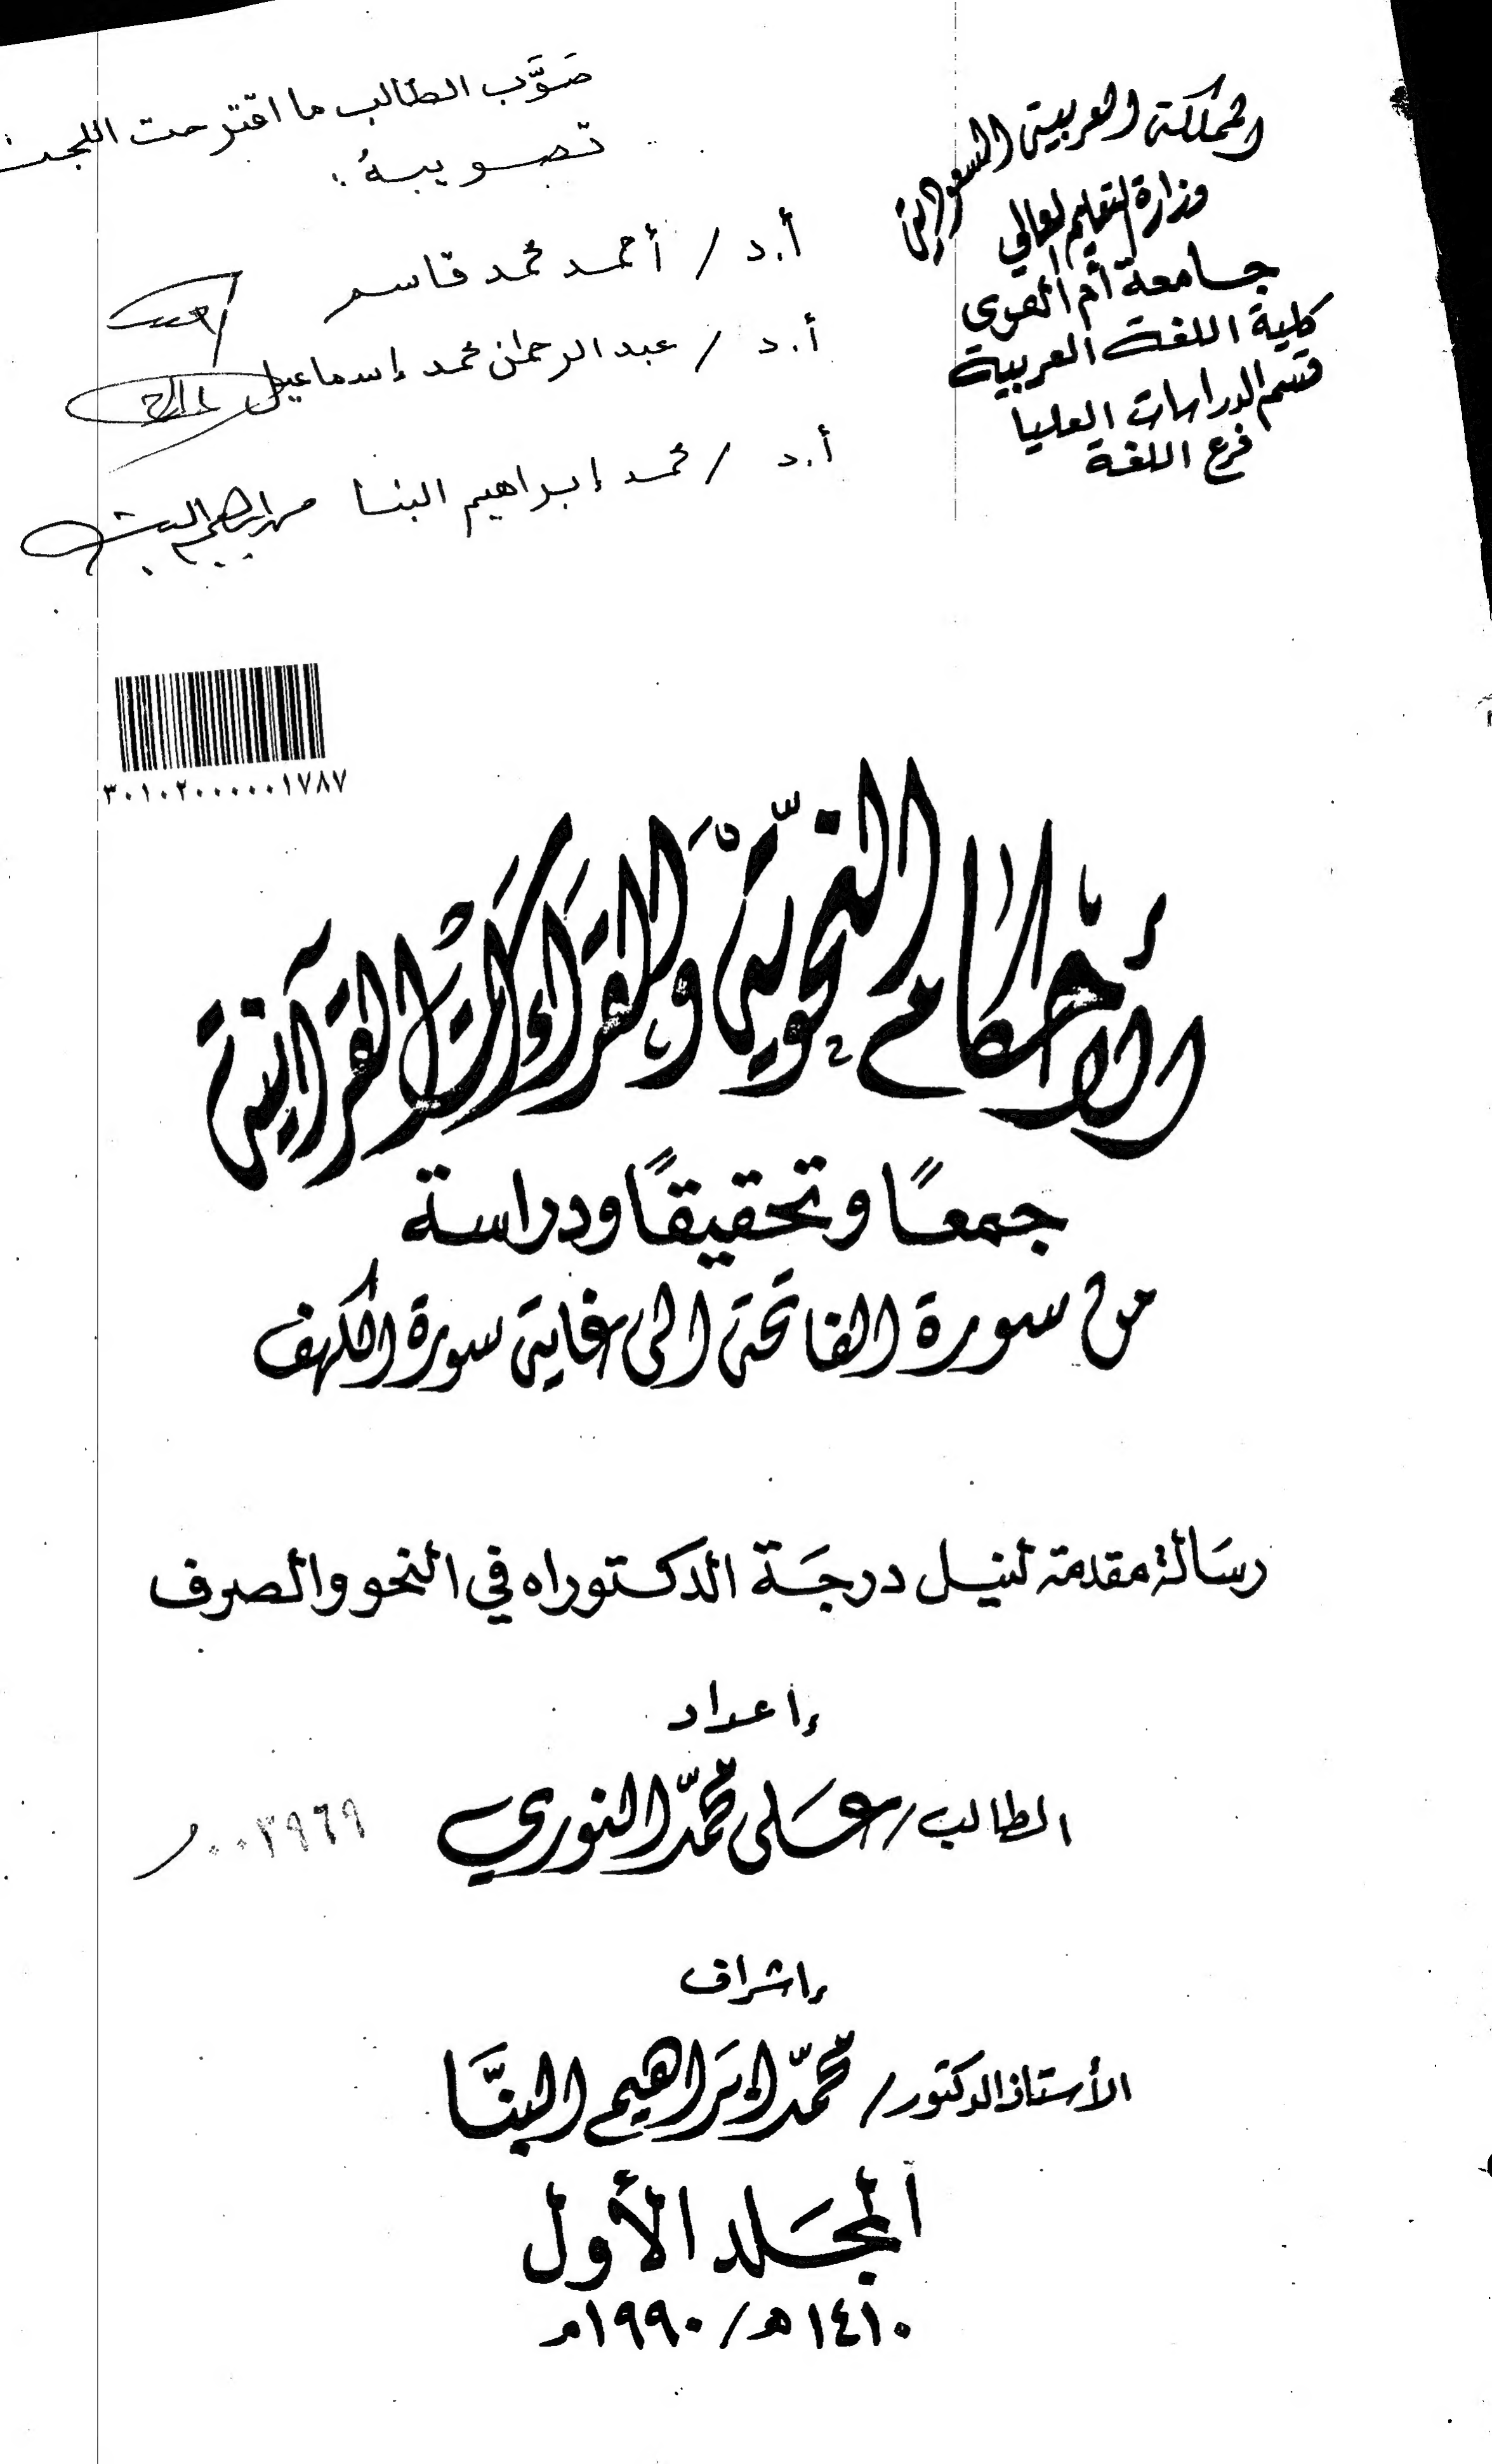 المملكة العربية السعودية
وزارة التعليم العالي
جامعة أم القرى
كلية اللغة العربية
قسم الدراسات العليا
فرع اللغة
صَوَّب الطالب ما اقترحت اللجنة
تصويبهُ:
أ.د / أحمد محمد قاسم
أ.د / عبد الرحمن محمد إسماعيل
أ.د / محمد إبراهيم البنا محمد إبراهيم البنا
٣٠١٠٢٠٠٠٠٠١٧٨٧
الأحكام النحويّة والقراءات القرآنية
جمعًا وتحقيقًا ودراسة
من سورة الفاتحة الى غاية سورة الكهف
رسَالة مقدمة لنيل درجَة الدكتوراه في النحو والصرف
إعداد
الطالب / عَلى محمّد النوري
٠٠٣٩٦٩
إشراف
الأستاذ الدكتور / محمّد إبرَاهيم البنَّا
المجَلد الأول
١٤١٠ هـ / ١٩٩٠م